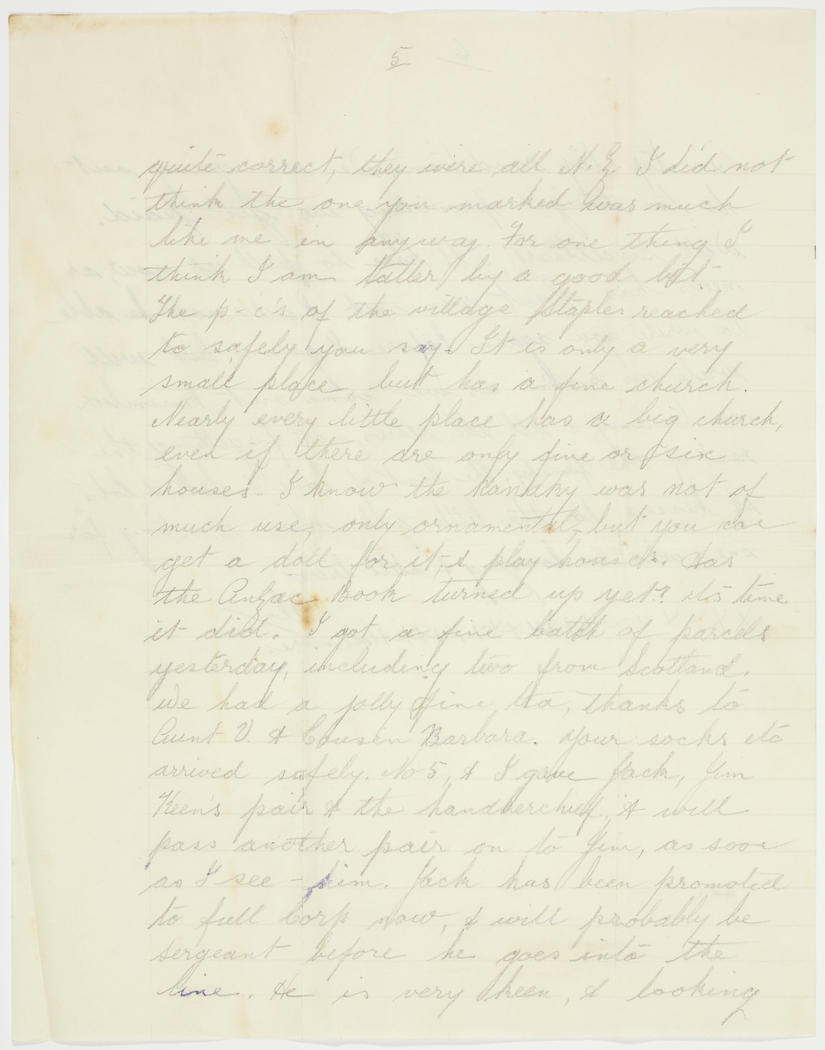 5
quite correct, they were all N.Z. I did not
think the one you marked was much
like me in anyway. For one thing I
think I am taller by a good bit.
The p-c's of the village Staples reached
to safely you say. It is only a very
small place but has a fine church.
Nearly every little place has a big church,
even if there are only five or six
houses. I know the handky was not of
much use, only ornamental, but you can
get a doll for it & play house. Has
the Anzac Book turned up yet? its time
it did. I got a fine batch of parcels
yesterday, including two from Scotland.
We had a jolly fine tea, thanks to
Aunt V. & Cousin Barbara. Your socks etc
arrived safely. No 5, & I gave Jack, Jim
Keen's pair & the handkerchief, & will
pass another pair on to Jim, as soon
as I see - him. Jack has been promoted
to full Corp now, & will probably be
sergeant before he goes into the
line. He is very keen, & looking